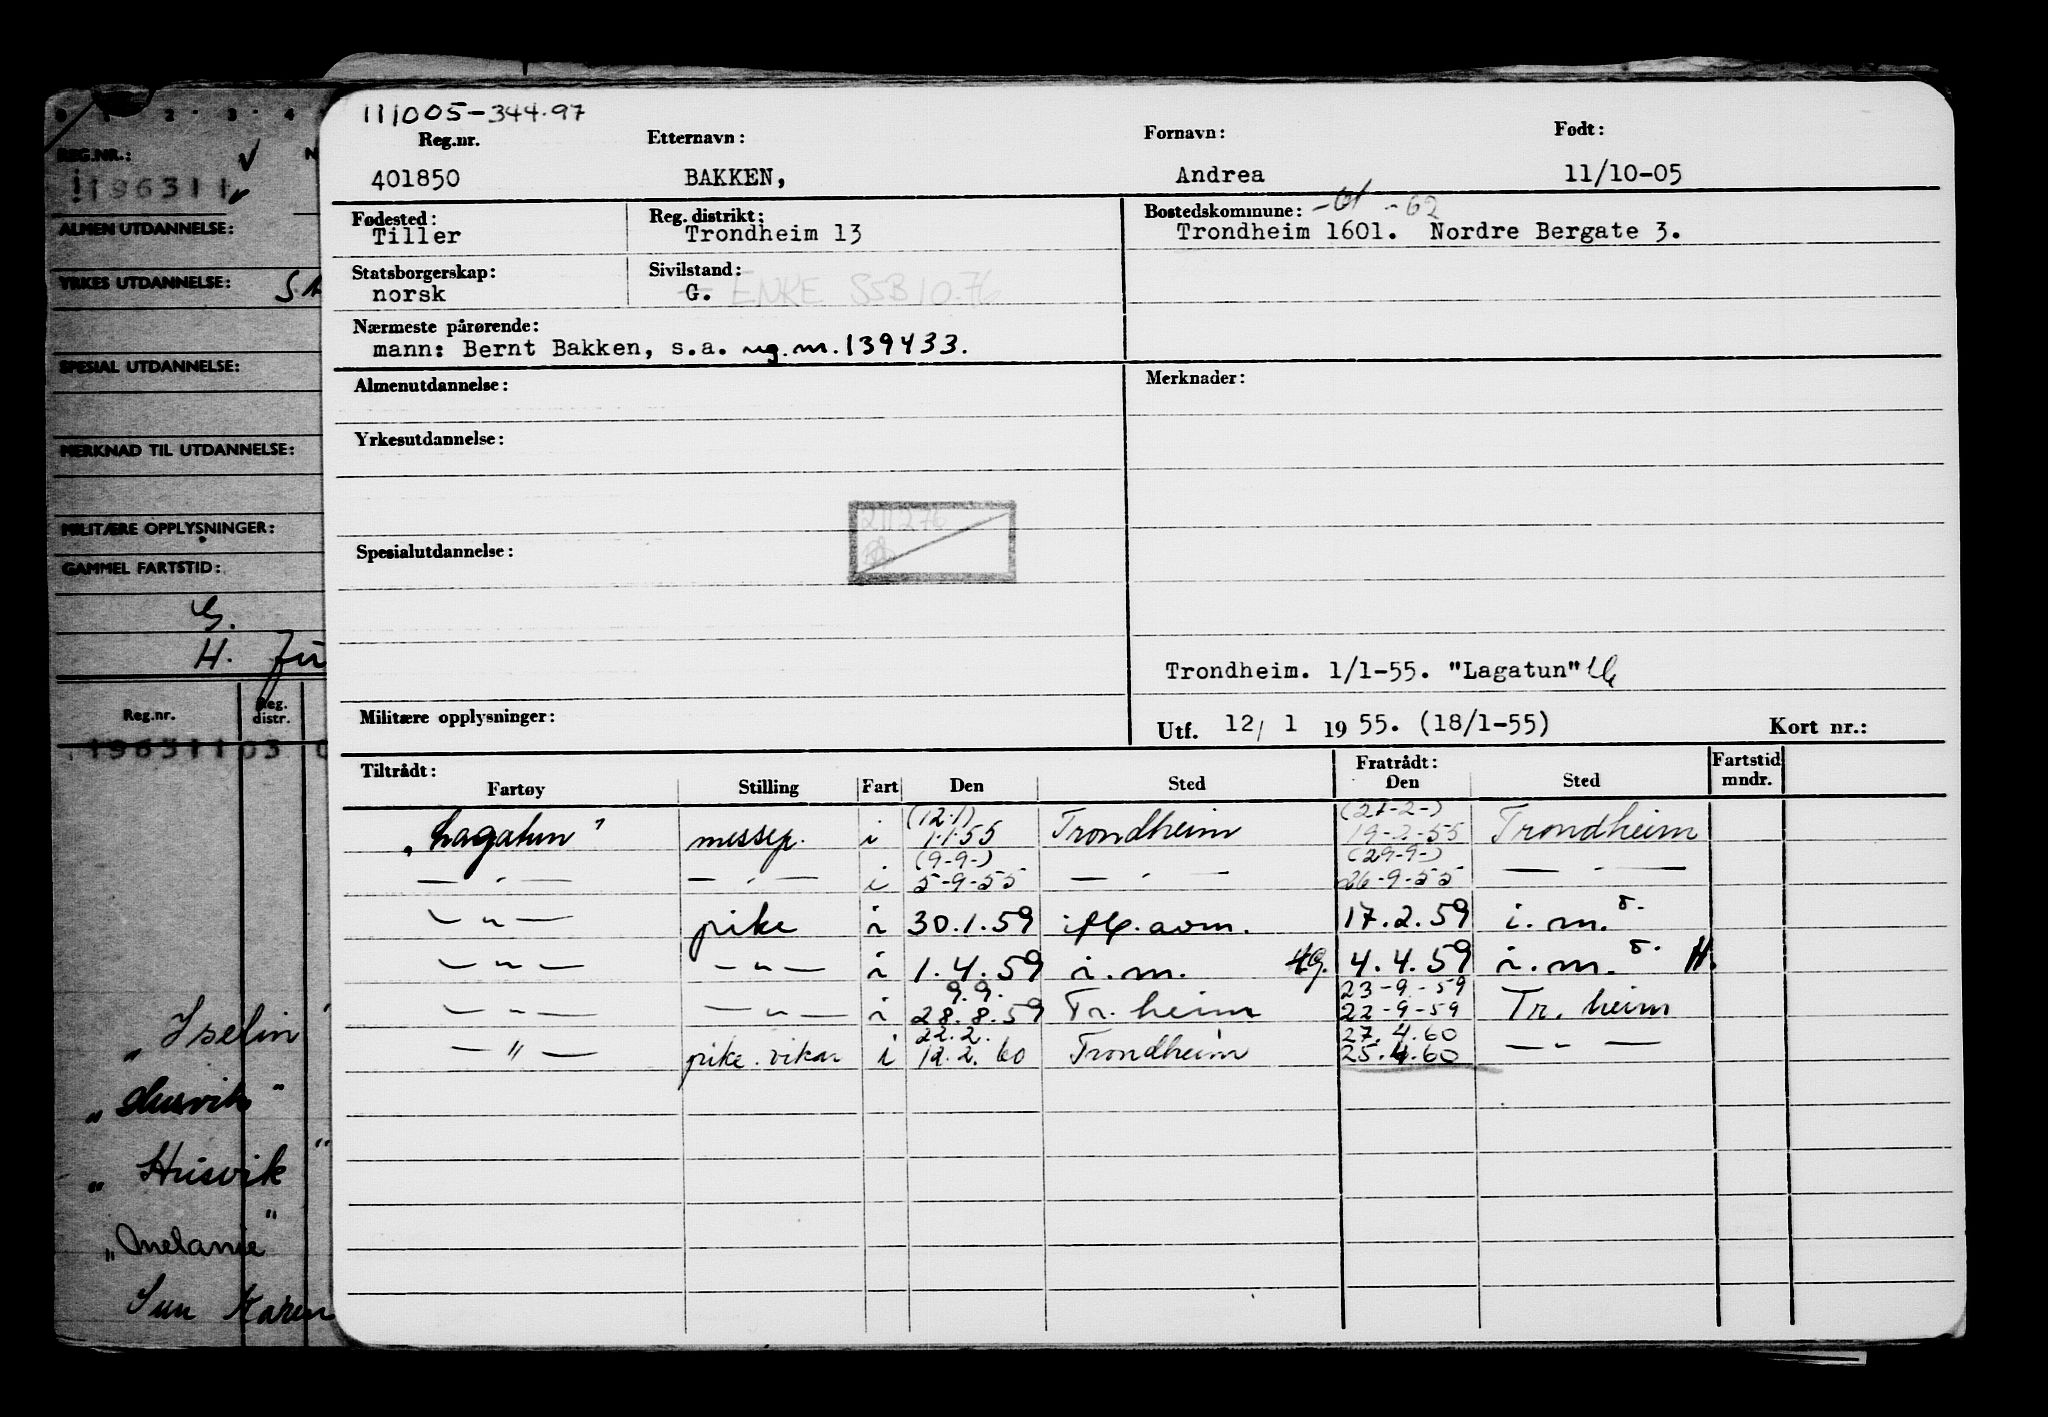 111005-344.97
Reg.nr. Etternavn: Fornavn: Født:
401850 BAKKEN, Andrea 11/10-05
Fødested: Reg. distrikt: Bostedskommune: -61 -62
Tiller Trondheim 13 Trondheim 1601. Nordre Bergate 3.
Statsborgerskap: Sivilstand:
norsk G. ENKE SSB 10.76
Nærmeste pårørende:
mann: Bernt Bakken, s.a. reg.nr. 139433.
Almenutdannelse: Merknader:
Yrkesutdannelse:
Spesialutdannelse:
Trondheim. 1/1-55. "Lagatun"
Militære opplysninger: Utf. 12/ 1 19 55. (18/1-55) Kort nr.:
Tiltrådt: Fratrådt: Fartstid
Fartøy Stilling Fart Den Sted Den Sted mndr.
(12.1) (21-2-)
„Lagatun" messep. i 1.1.55 Trondheim 19-2-55 Trondheim
(9-9-) (29-9-)
— " — — " — i 5-9-55 — " — 26-9-55 — " —
— " — pike i 30.1.59 17.2.59 i.m.
— " — — " — i 1.4.59 i.m. 4.4.59 i.m. H.
9.9. 23-9-59
— " — — " — i 28.8.59 Tr. heim 22-9-59 Tr. heim
22.2. 27.4.60
— " — pike. vikar i 12.2.60 Trondheim 25.4.60 — " —
0 1 2 3 4
REG.NR.:
196311
ALMEN UTDANNELSE:
YRKES UTDANNELSE:
SPESIAL UTDANNELSE:
MERKNAD TIL UTDANNELSE:
MILITÆRE OPPLYSNINGER:
GAMMEL FARTSTID:
H.
Reg.nr. Reg. distr.
196311 03
„Iselin"
„Husvik"
„Husvik"
„Melanie"
Sun Karen